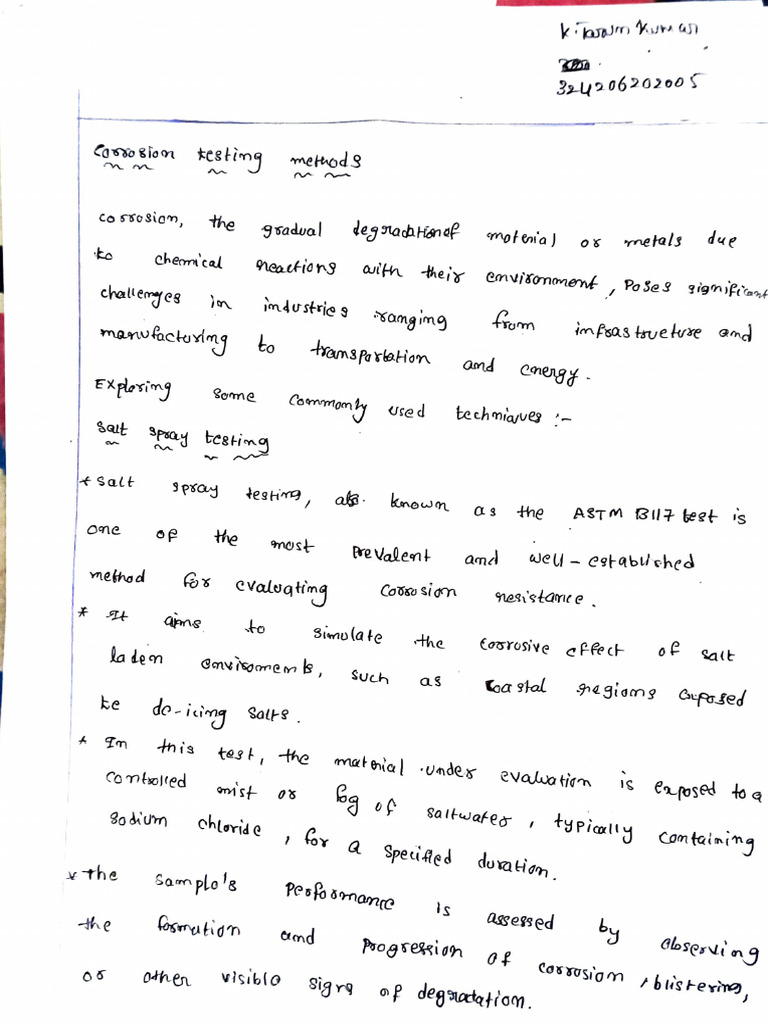 K. Tarun Kumar
324206202005
Corrosion testing methods
corrosion, the gradual degradation of material or metals due
to chemical reactions with their environment, poses significant
challenges in industries ranging from infrastructure and
manufacturing to transportation and energy.
Exploring some commonly used techniques :-
Salt spray testing
* Salt spray testing, also known as the ASTM B117 test is
one of the most prevalent and well-established
method for evaluating corrosion resistance.
* It aims to simulate the corrosive effect of salt
laden environments, such as coastal regions exposed
to de-icing salts.
* In this test, the material under evaluation is exposed to a
controlled mist or fog of saltwater, typically containing
sodium chloride, for a specified duration.
* the sample's performance is assessed by observing
the formation and progression of corrosion, blistering,
or other visible signs of degradation.